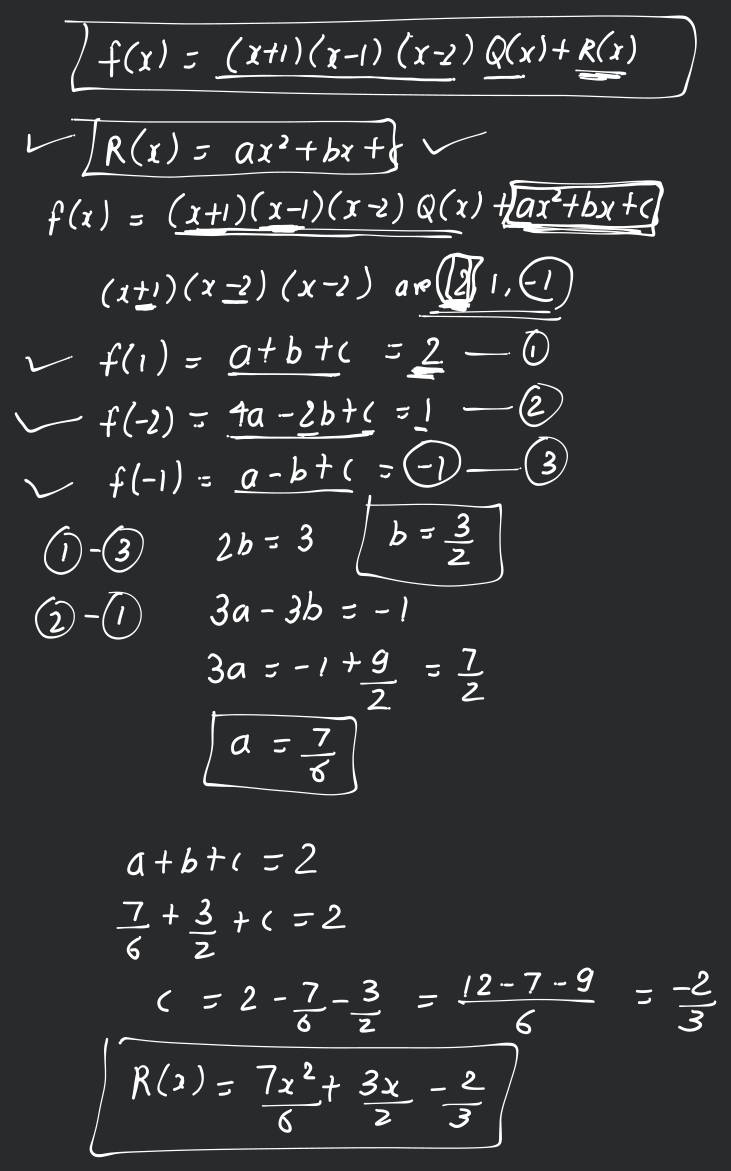 f(x) = (x+1)(x-1)(x-2) Q(x) + R(x)
R(x) = ax² + bx + c
f(x) = (x+1)(x-1)(x-2) Q(x) + ax²+bx+c
(x+1)(x-2)(x-2) are 2, 1, -1
f(1) = a+b+c = 2 — ①
f(-2) = 4a-2b+c = 1 — ②
f(-1) = a-b+c = -1 — ③
①-③ 2b = 3 b = 3/2
②-① 3a-3b = -1
3a = -1 + 9/2 = 7/2
a = 7/6
a+b+c = 2
7/6 + 3/2 + c = 2
c = 2 - 7/6 - 3/2 = (12-7-9)/6 = -2/3
R(x) = 7x²/6 + 3x/2 - 2/3